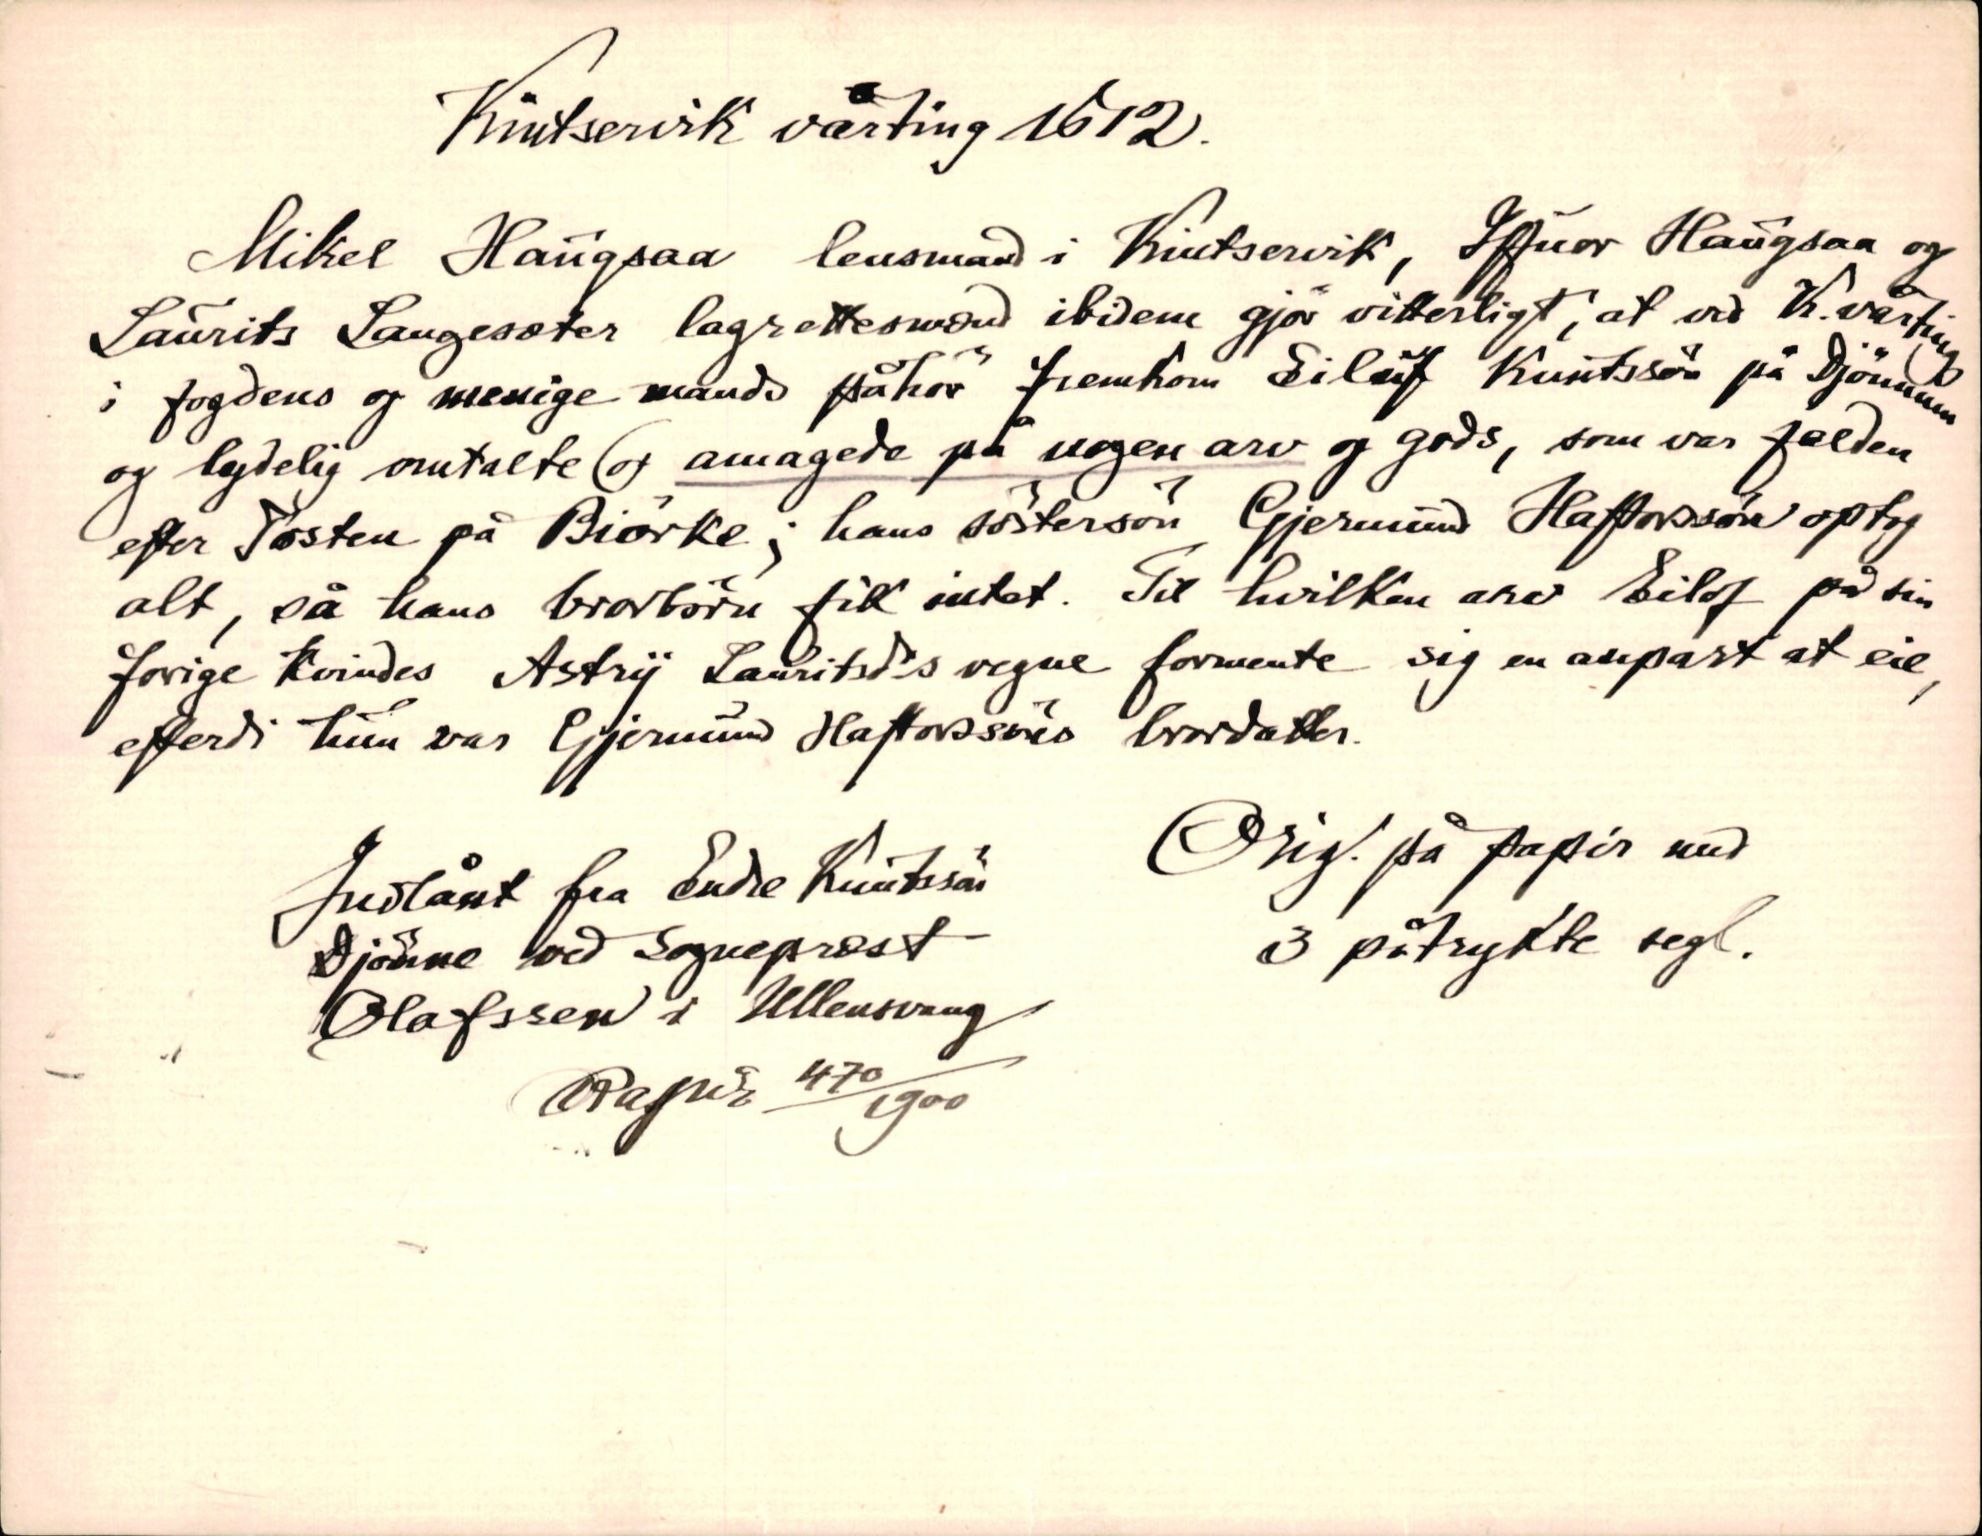 Kintservik vårting 1612.
Mikel Haugsaa lensmand i Kintservik, Iffuor Haugsaa og
Laurits Langesæter lagrettesmænd ibidem gjör vitterligt, at ved K. vårting
i fogdens og menige mands påhör fremkom Eiluf Knutssön på Djönnum
og lydelig omtalte (og amagede på nogen arv og gods, som var falden
efter Tosten på Biörke; hans söstersön Gjermund Haftorssön optog
alt, så hans brorbörn fik intet. Til hvilken arv Eilof på sin
forige kvindes Astrij Lauritsd's vegne formente sig en anpart at eie,
efterdi hun var Gjermund Haftorssöns brordatter.
Indlånt fra Endre Knutssön
Djönne ved Sogneprest
Olafssen i Ullensvang
Papir 470/1900
Orig. på papir med
3 påtrykte segl.